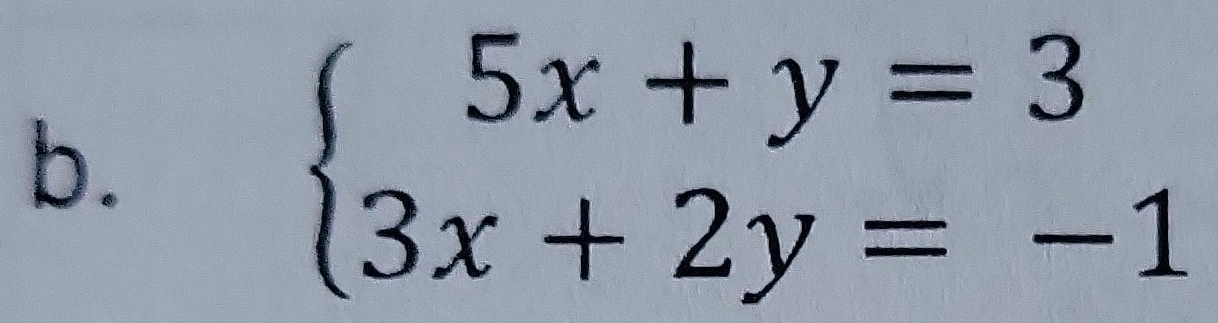 b.
5x + y = 3
3x + 2y = −1